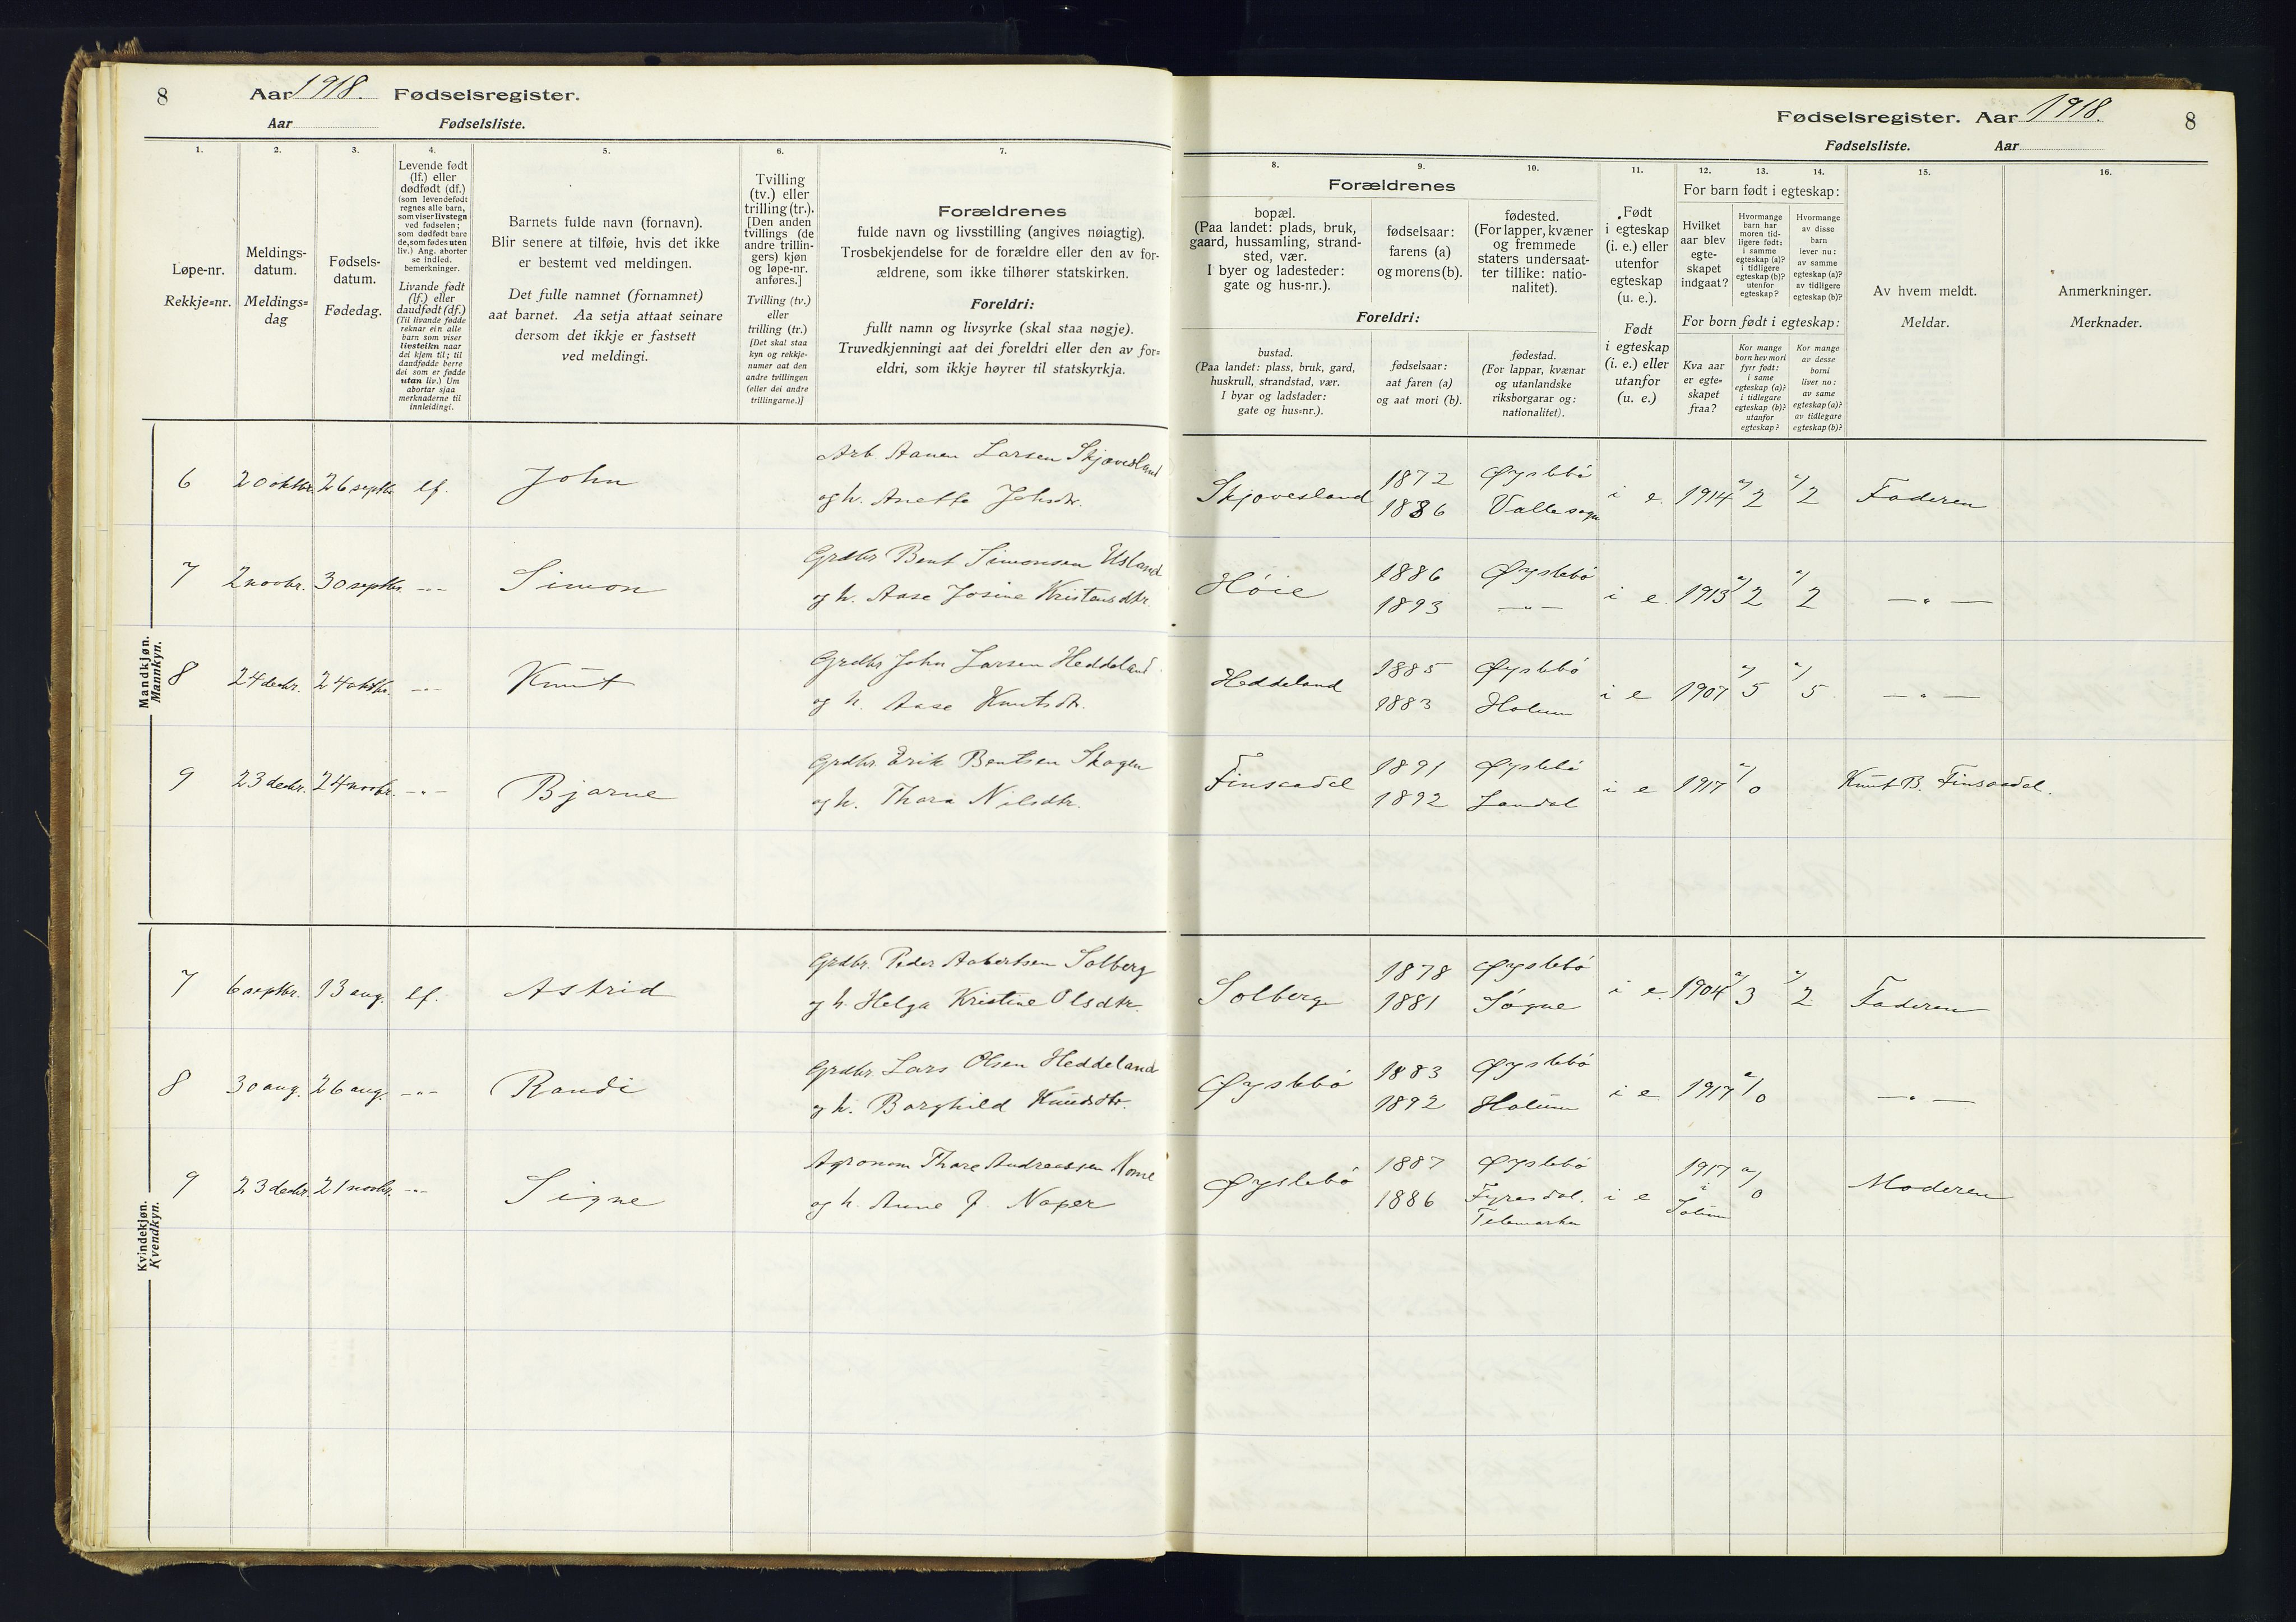 8 Aar 1918. Fødselsregister.
Aar Fødselsliste.
Fødselsregister. Aar 1918. 8
Fødselsliste. Aar
1. 2. 3. 4. 5. 6. 7.
Løpe-nr.
Rekkje=nr.
Meldings-
datum.
Meldings=
dag
Fødsels-
datum.
Fødedag.
Levende født
(lf.) eller
dødfødt (df.)
(som levendefødt
regnes alle barn,
som viser livstegn
ved fødselen;
som dødfødt bare
de, som fødes uten
liv.) Ang. aborter
se indled.
bemerkninger.
Livande født
(lf.) eller
daudfødt (df.)
(Til livande fødde
reknar ein alle
barn som viser
livsteikn naar
dei kjem til; til
daudfødde berre
dei som er fødde
utan liv.) Um
abortar sjaa
merknaderne til
innleidingi.
Barnets fulde navn (fornavn).
Blir senere at tilføie, hvis det ikke
er bestemt ved meldingen.
Det fulle namnet (fornamnet)
aat barnet. Aa setja attaat seinare
dersom det ikkje er fastsett
ved meldingi.
Tvilling
(tv.) eller
trilling (tr.).
[Den anden
tvillings (de
andre trillin-
gers) kjøn
og løpe-nr.
anføres.]
Tvilling (tv.)
eller
trilling (tr.)
[Det skal staa
kyn og rekkje-
numer aat den
andre tvillingen
(eller dei andre
trillingarne.)]
Forældrenes
fulde navn og livsstilling (angives nøiagtig).
Trosbekjendelse for de forældre eller den av for-
ældrene, som ikke tilhører statskirken.
Foreldri:
fullt namn og livsyrke (skal staa nøgje).
Truvedkjenningi aat dei foreldri eller den av for=
eldri, som ikkje høyrer til statskyrkja.
8. 9. 10. 11. 12. 13. 14. 15. 16.
Forældrenes
bopæl.
(Paa landet: plads, bruk,
gaard, hussamling, strand-
sted, vær.
I byer og ladesteder:
gate og hus-nr.).
fødselsaar:
farens (a)
og morens (b).
fødested.
(For lapper, kvæner
og fremmede
staters undersaat-
ter tillike: natio-
nalitet).
Foreldri:
bustad.
(Paa landet: plass, bruk, gard,
huskrull, strandstad, vær.
I byar og ladstader:
gate og hus=nr.).
fødselsaar:
aat faren (a)
og aat mori (b).
fødestad.
(For lappar, kvænar
og utanlandske
riksborgarar og:
nationalitet).
Født
i egteskap
(i. e.) eller
utenfor
egteskap
(u. e.).
Født
i egteskap
(i. e.) eller
utanfor
(u. e.)
For barn født i egteskap:
Hvilket
aar blev
egte-
skapet
indgaat?
Hvormange
barn har
moren tid-
ligere født:
i samme
egteskap (a)?
i tidligere
egteskap (b)?
utenfor
egteskap?
Hvormange
av disse
barn
lever nu:
av samme
egteskap (a)?
av tidligere
egteskap (b)?
For born født i egteskap:
Kva aar
er egte=
skapet
fraa?
Kor mange
born hev mori
fyrr født:
i same
egteskap (a)?
i tidlegare
egteskap (b)?
utanfor
egteskap?
Kor mange
av desse
borni
liver no:
av same
egteskap (a)?
av tidlegare
egteskap (b)?
Av hvem meldt.
Meldar.
Anmerkninger.
Merknader.
Mandkjøn.
Mannkyn.
6 20 oktbr. 26 septbr. lf. John Arb. Aanen Larsen Skjævesland
og h. Anetta Johsdtr. Skjævesland 1872 1886 Øyslebö Valle sogn i e. 1914 a/2 a/2 Faderen
7 2 novbr. 30 septbr. -„- Simon Grdbr Bent Simonsen Usland
og h. Aase Josine Kristensdtr. Höie 1886 1893 Øyslebö —„— i e. 1913 a/2 a/2 —„—
8 24 decbr. 24 oktbr. -„- Knut Grdbr John Larsen Heddeland
og h. Aase Knutsdtr. Heddeland 1885 1883 Øyslebö Holum i e 1907 a/5 a/5 —„—
9 23 decbr. 24 novbr. -„- Bjarne Grdbr. Erik Bentsen Skogen
og h. Thara Nilsdtr. Finsaadal 1891 1892 Øyslebö Laudal i e 1917 a/0 Knut B. Finsaadal.
Kvindekjøn.
Kvendkyn.
7 6 septbr. 13 aug. lf. Astrid Grdbr. Peder Aabertsen Solberg
og h. Helga Kristine Olsdtr. Solberg 1878 1881 Øyslebö Sögne i e. 1904 a/3 a/2 Faderen
8 30 aug. 26 aug. -„- Randi Grdbr Lars Olsen Heddeland
og h. Borghild Knudsdtr. Øyslebö 1883 1892 Øyslebö Holum i e 1917 a/0 —„—
9 23 decbr. 21 novbr. -„- Signe Agronom Thore Andreassen Nome
og h. Anne J. Naper Øyslebö 1887 1886 Øyslebö Fyresdal. Telemarken i e 1917 i Solum a/0 Moderen